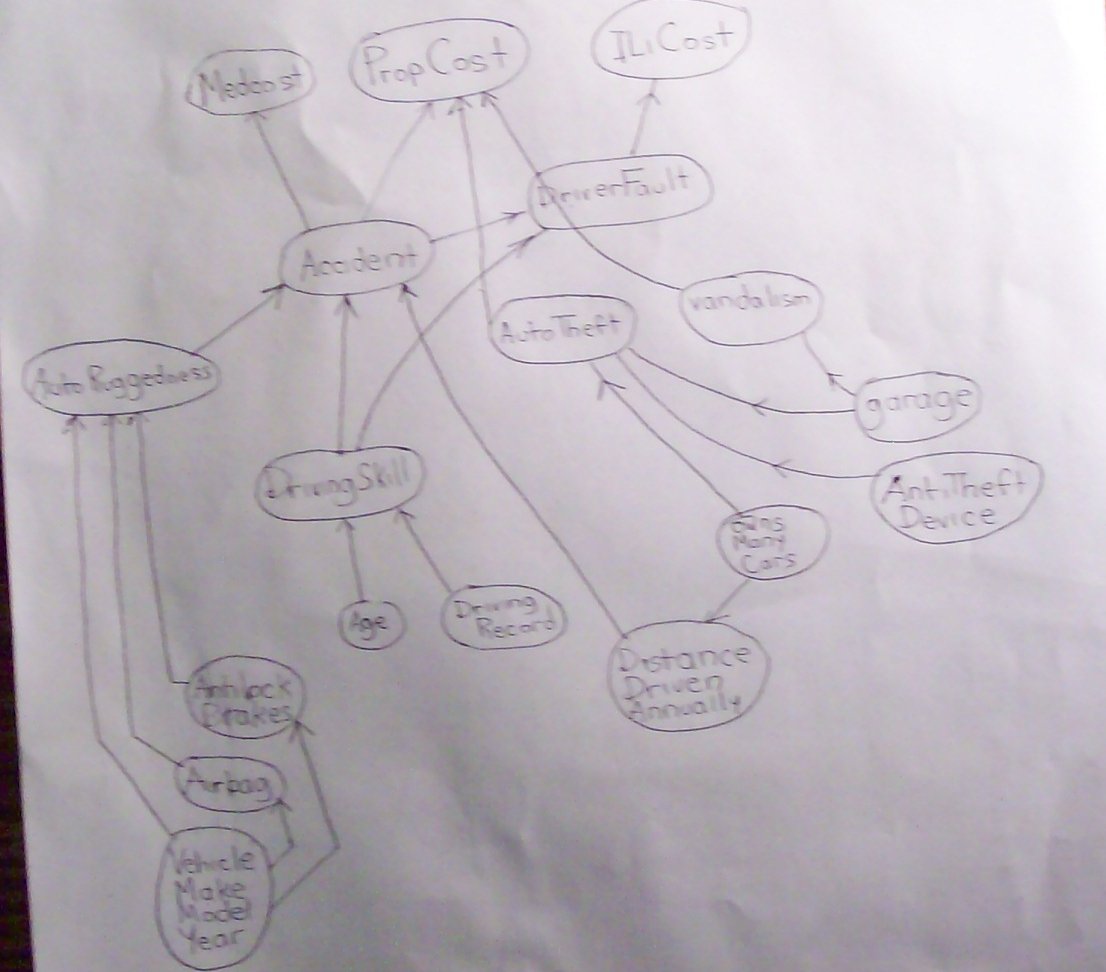 Medcost
PropCost
ILiCost
DriverFault
Accident
vandalism
AutoTheft
AutoRuggedness
garage
DrivingSkill
AntiTheft
Device
Owns
Many
Cars
Age
Driving
Record
Distance
Driven
Annually
Antilock
Brakes
Airbag
Vehicle
Make
Model
Year